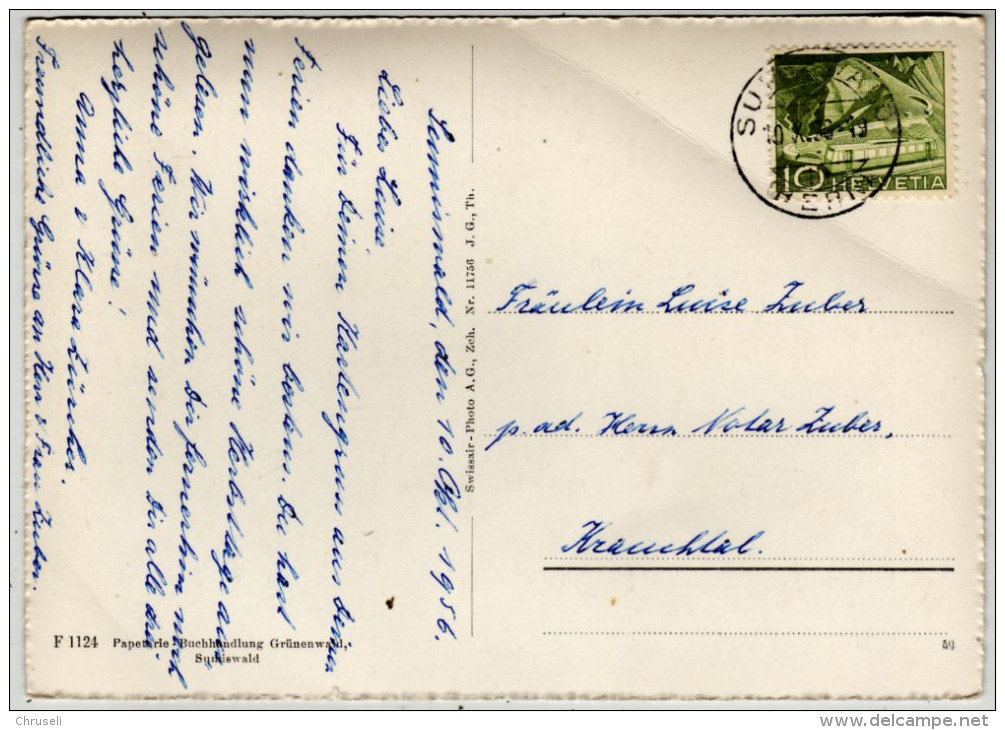 Sumiswald, den 10. Okt. 1956.
Liebe Luise
Für Deinen Kartengruss aus Deinen
Ferien danken wir bestens. Du hast
nun wirklich schöne Herbsttage
gelesen. Wir wünschen Dir fernerhin noch
schöne Ferien und senden Dir alle die
herzliche Grüsse!
Anna & Klara Zürcher.
Freundliche Grüsse an Herr & Frau Zuber.
Swissair-Photo A.G., Zch. Nr. 11756 J. G., Th.
10 HELVETIA
SUMISWALD
BERN
Fräulein Luise Zuber
p. ad. Herrn Notar Zuber,
Krauchtal.
F 1124 Papeterie-Buchhandlung Grünenwald,
Sumiswald
Chruseli
www.delcampe.net